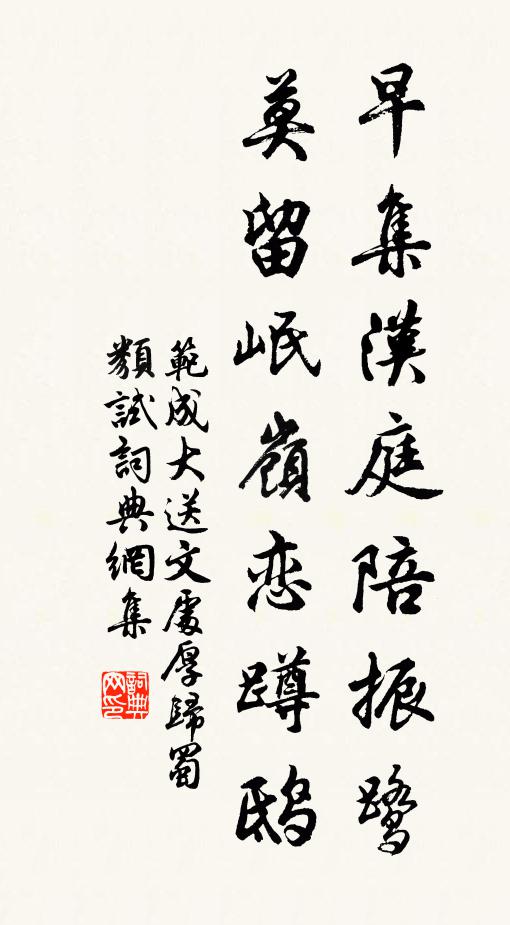 早集漢庭陪振鹭
莫留岷嶺恋蹲鸱
範成大送文處厚歸蜀
類試詞典網集
詞典
网印